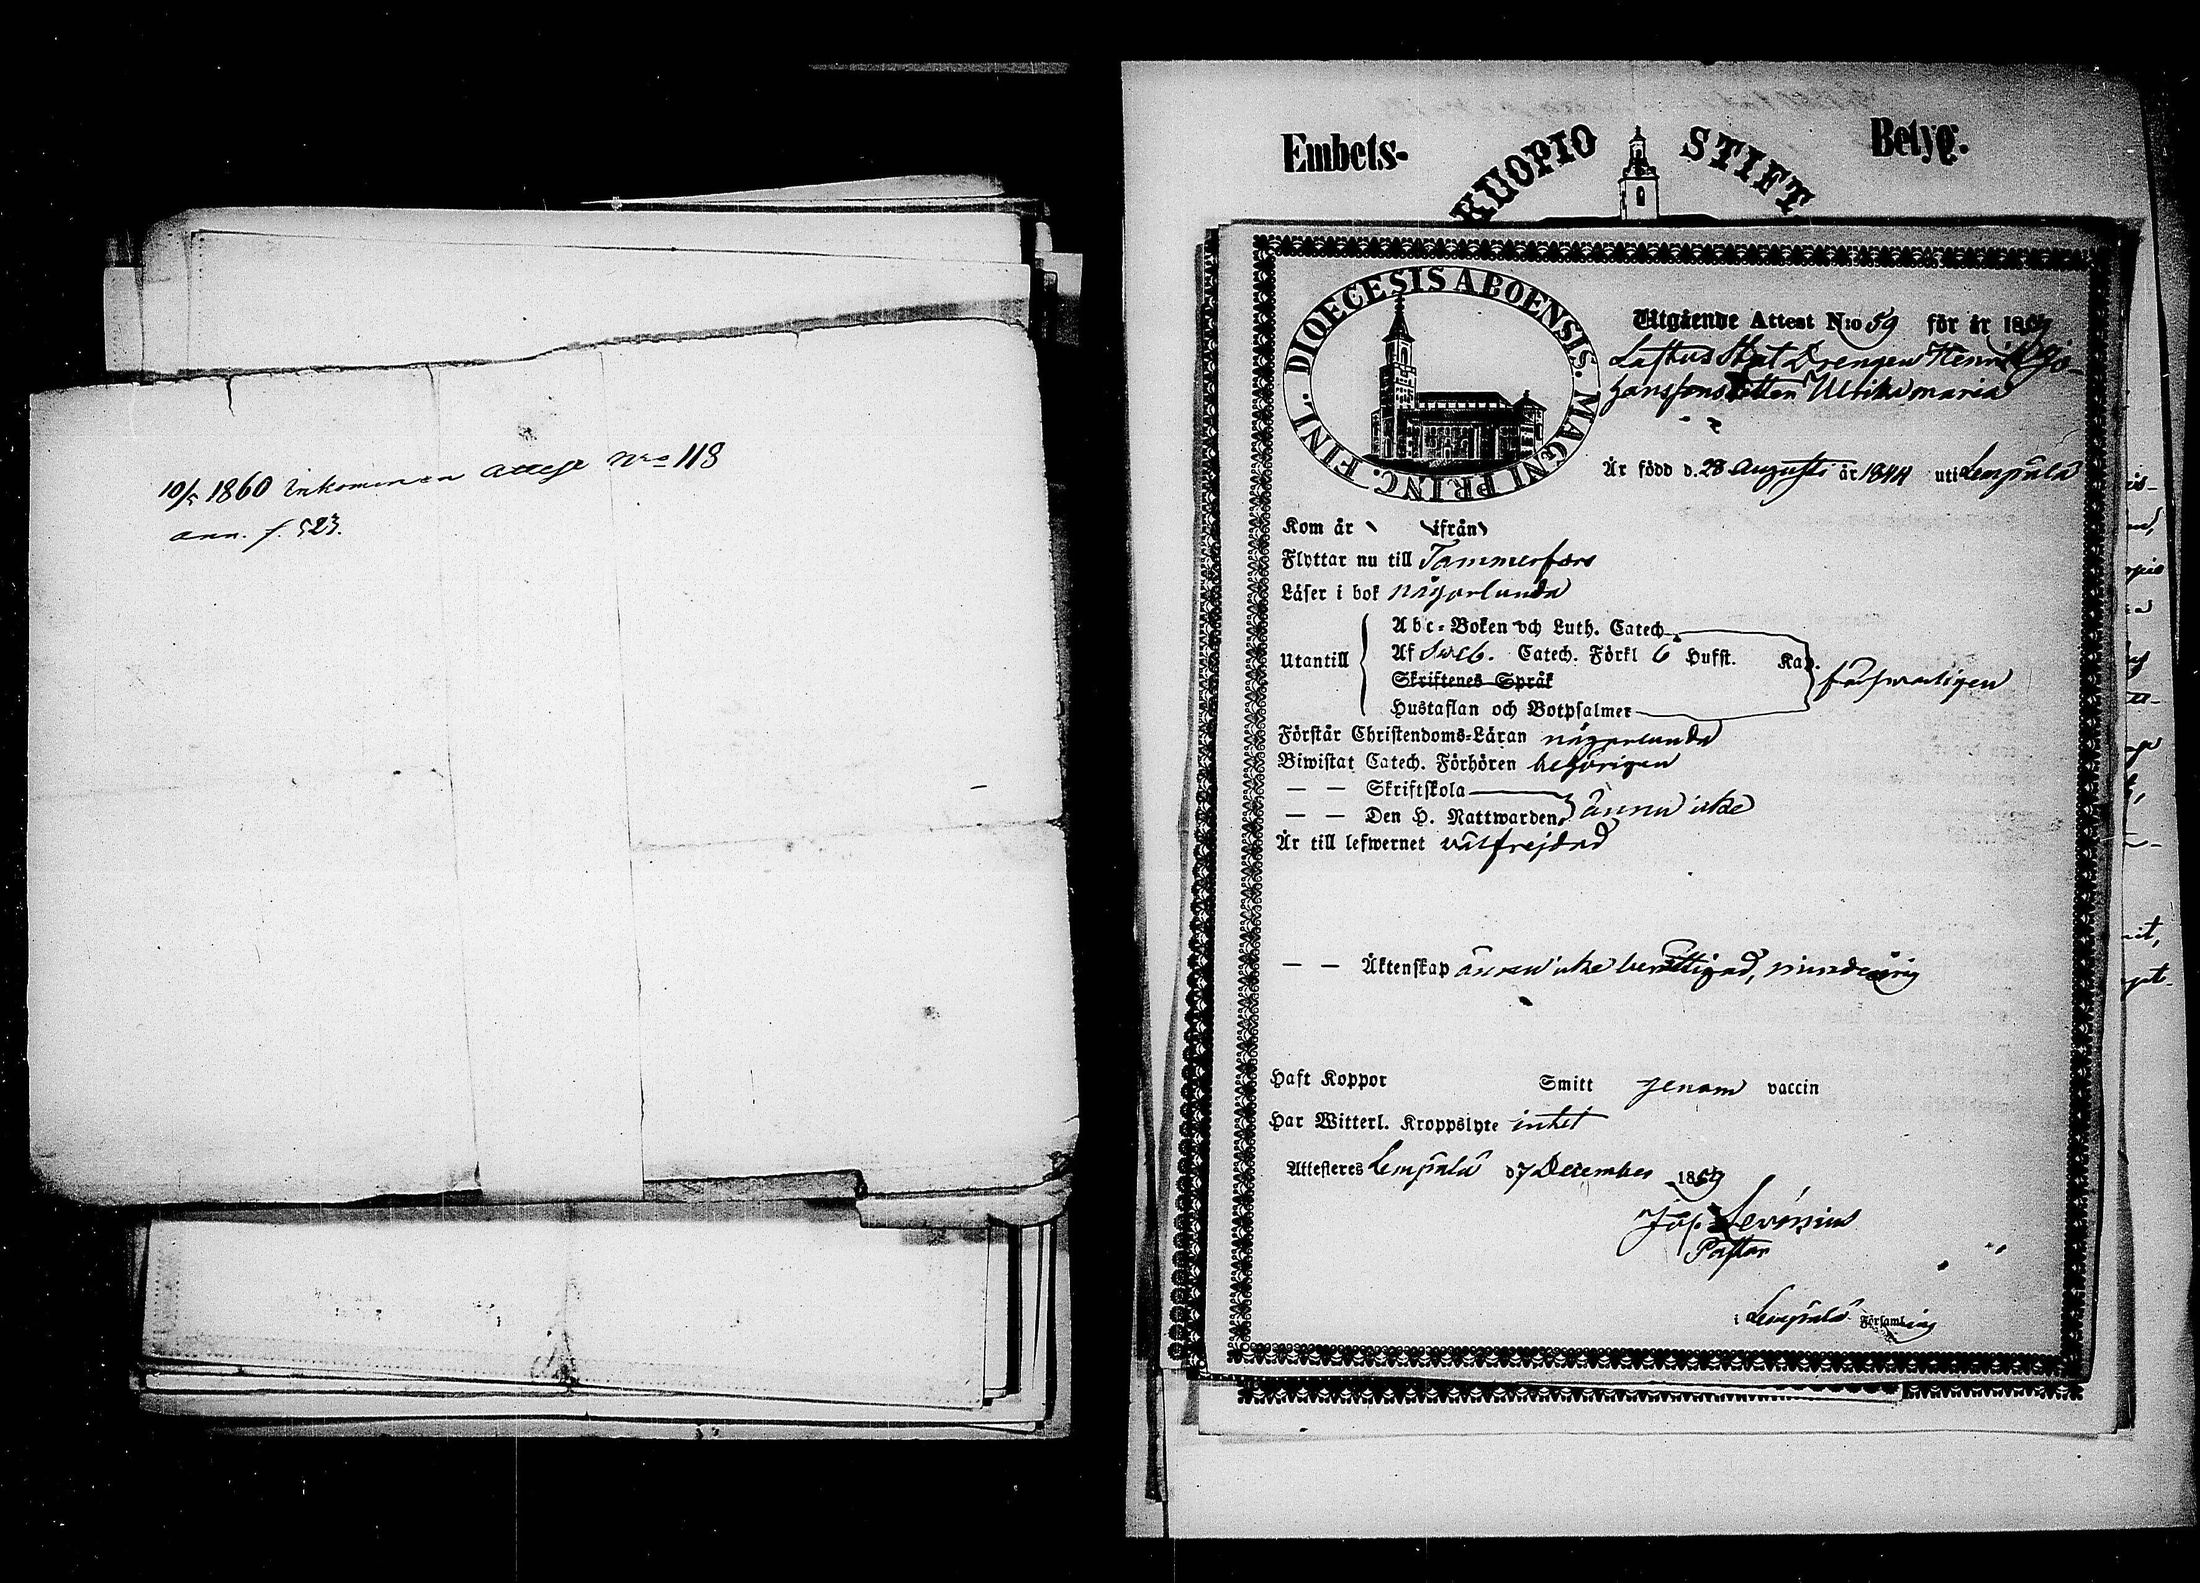 10/5 1860 Inkommen Attest Nro 118
ann. f. 523.
Embets- KUOPIO STIFT Betyg.
DIOECESIS ABOENSIS. MAGNI PRINC. FINL.
Utgående Attest N:o 59 för år 1859
Drengen Henrik Jo-
hansons dotter Ulrika Maria
Är född d. 28 Augusti år 1844 uti Lempälä
Kom år ifrån
Flyttar nu till Tammerfors
Läser i bok någorlunda
Utantill
Abc-Boken och Luth. Catech.
Af Sweb. Catech. Förkl 6 Hufst. Kap.
Skriftenes Språk
försvarligen
Hustaflan och Botpsalmer
Förstår Christendoms-Läran någorlunda
Biwistat Catech. Förhören behörigen
— — Skriftskola
— — Den H. Nattwarden ännu icke
Är till lefwernet välfrejdad
— — Äktenskap ännu icke berättigad, minderårig
Haft Koppor Smitt genom vaccin
Har Witterl. Kroppslyte intet
Attesteres Lempälä d 7 December 1859
Jos.
Pastor
i Lempälä Församling